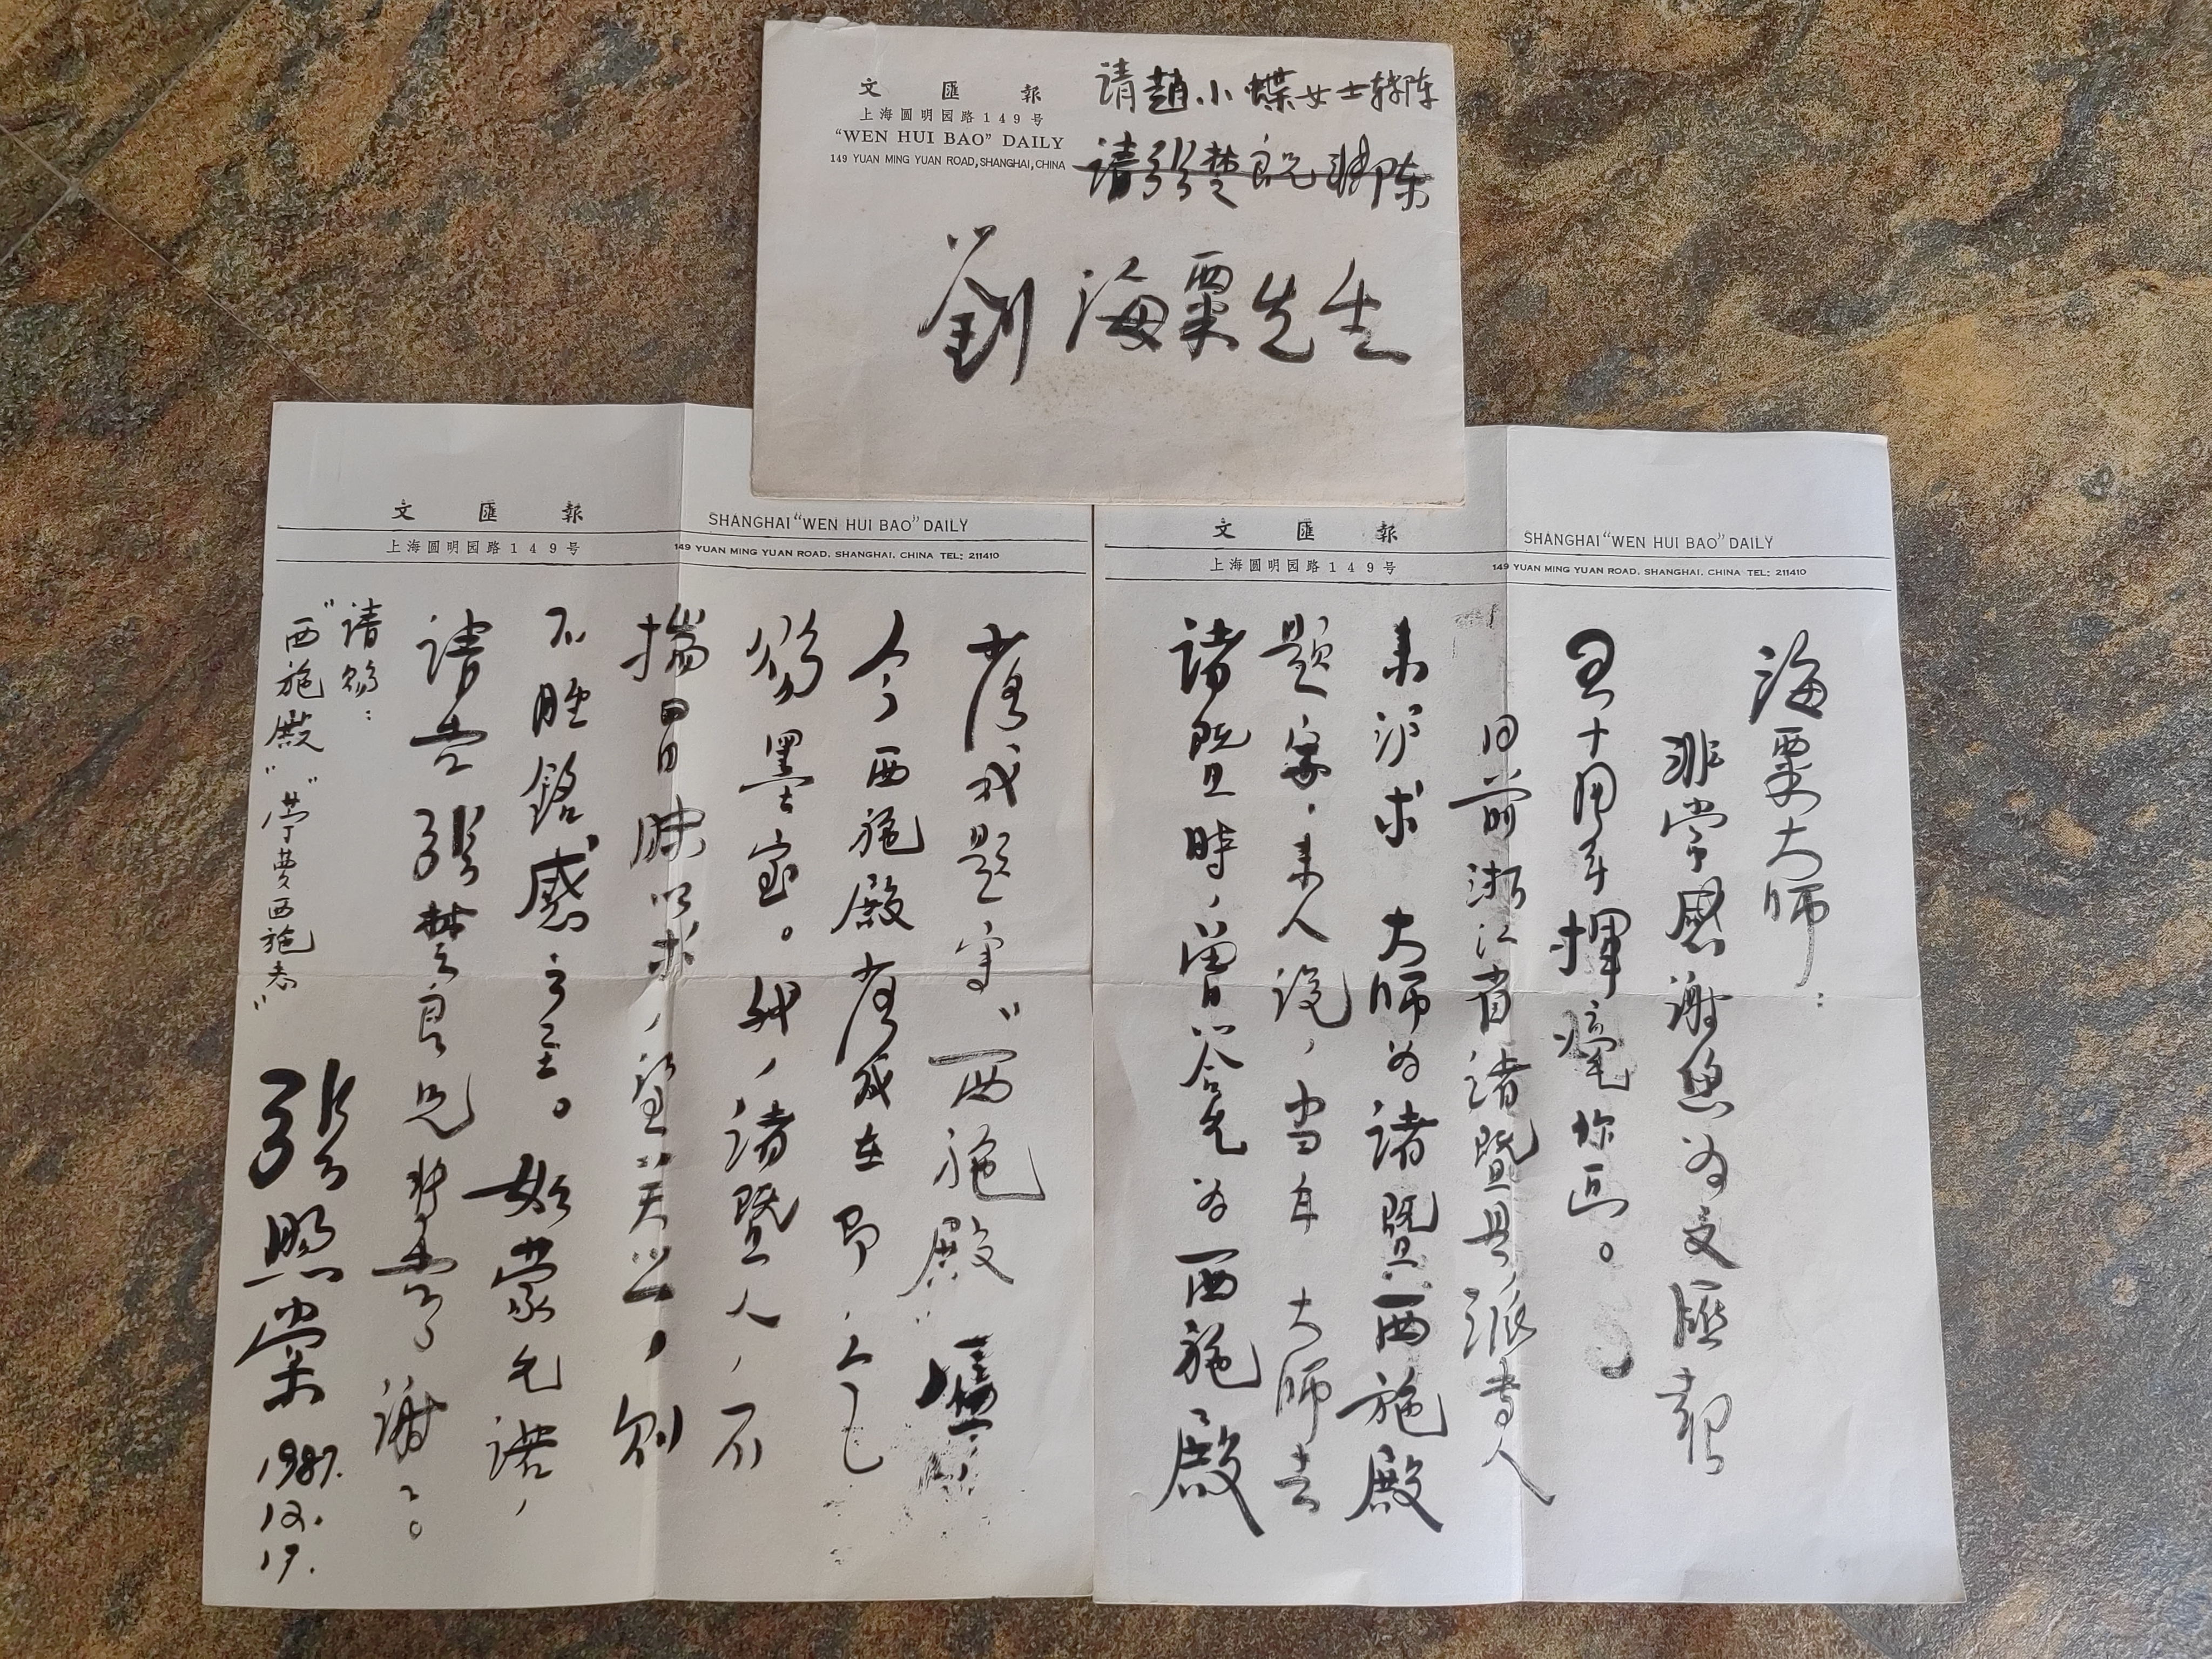 文匯報
上海圓明园路149号
“WEN HUI BAO” DAILY
149 YUAN MING YUAN ROAD, SHANGHAI, CHINA
请趙小蝶女士转陈
请张楚良兄转陈
劉海粟先生
文匯報
SHANGHAI “WEN HUI BAO” DAILY
上海圓明园路149号
149 YUAN MING YUAN ROAD. SHANGHAI. CHINA TEL: 211410
海粟大师：
非常感谢您为文匯報
五十周年揮毫作画。
日前浙江省諸暨县，派专人
来沪求 大师为諸暨西施殿
題字，来人说，当年 大师去
諸暨時，曾答允为西施殿
文匯報
SHANGHAI “WEN HUI BAO” DAILY
上海圓明园路149号
149 YUAN MING YUAN ROAD. SHANGHAI. CHINA TEL: 211410
落成題字“西施殿”匾，
今西施殿落成在即，亟乞
賜墨宝。我，諸暨人，不
揣冒昧以求，望
不胜銘感之至。如蒙允诺，
请告张楚良兄转告，谢谢。
请赐：
“西施殿”“苧萝西施志”
张煦棠
1987.
12.
17.